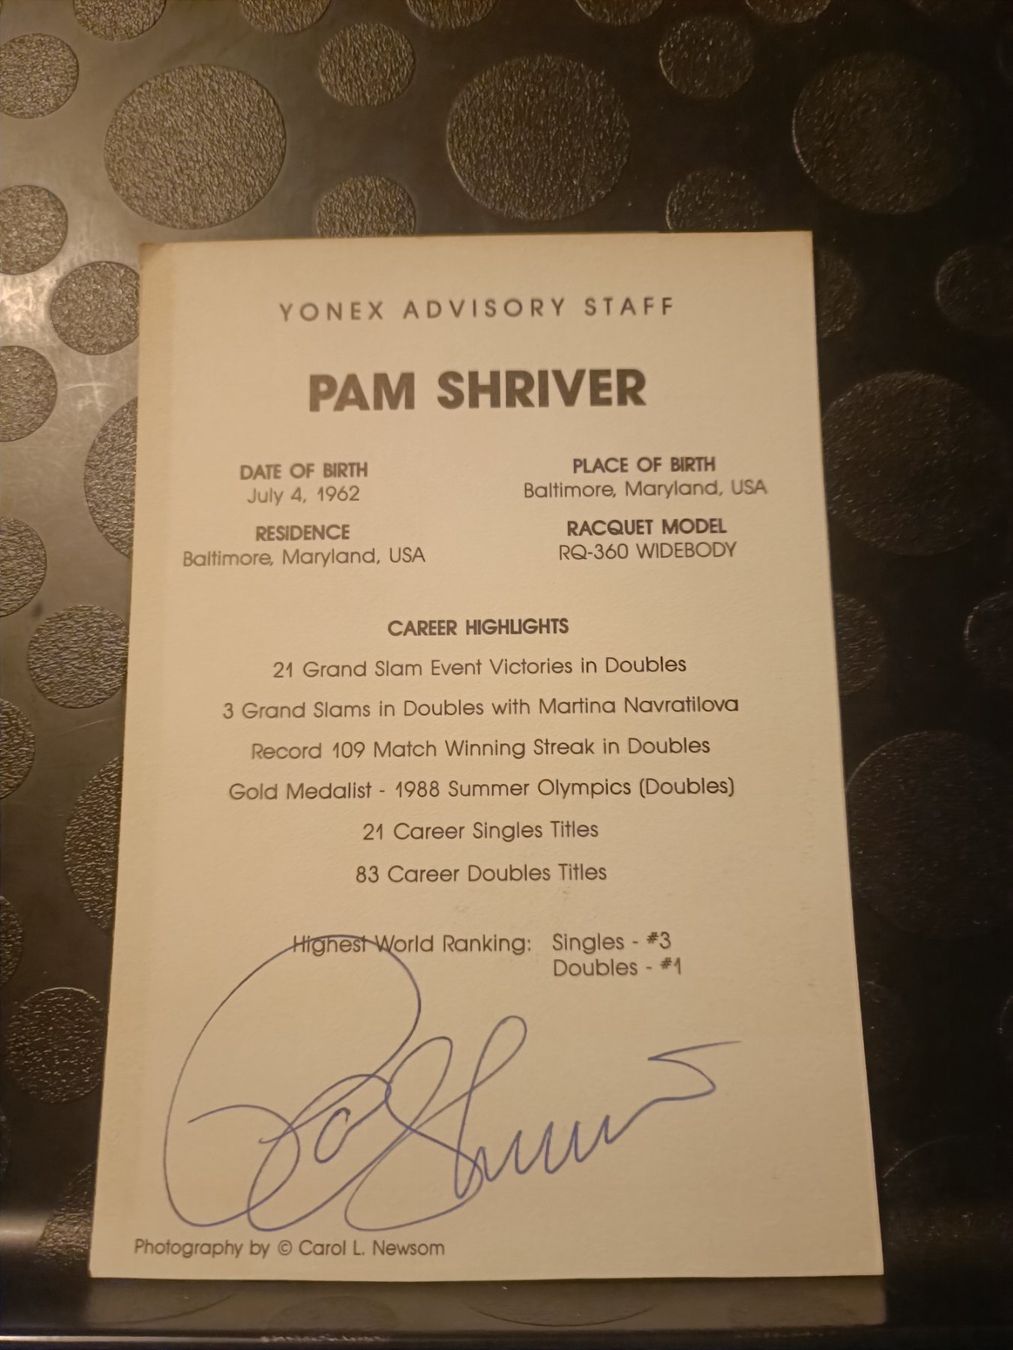 YONEX ADVISORY STAFF
PAM SHRIVER
DATE OF BIRTH
July 4, 1962
PLACE OF BIRTH
Baltimore, Maryland, USA
RESIDENCE
Baltimore, Maryland, USA
RACQUET MODEL
RQ-360 WIDEBODY
CAREER HIGHLIGHTS
21 Grand Slam Event Victories in Doubles
3 Grand Slams in Doubles with Martina Navratilova
Record 109 Match Winning Streak in Doubles
Gold Medalist - 1988 Summer Olympics (Doubles)
21 Career Singles Titles
83 Career Doubles Titles
Highest World Ranking: Singles - #3
Doubles - #1
Photography by © Carol L. Newsom